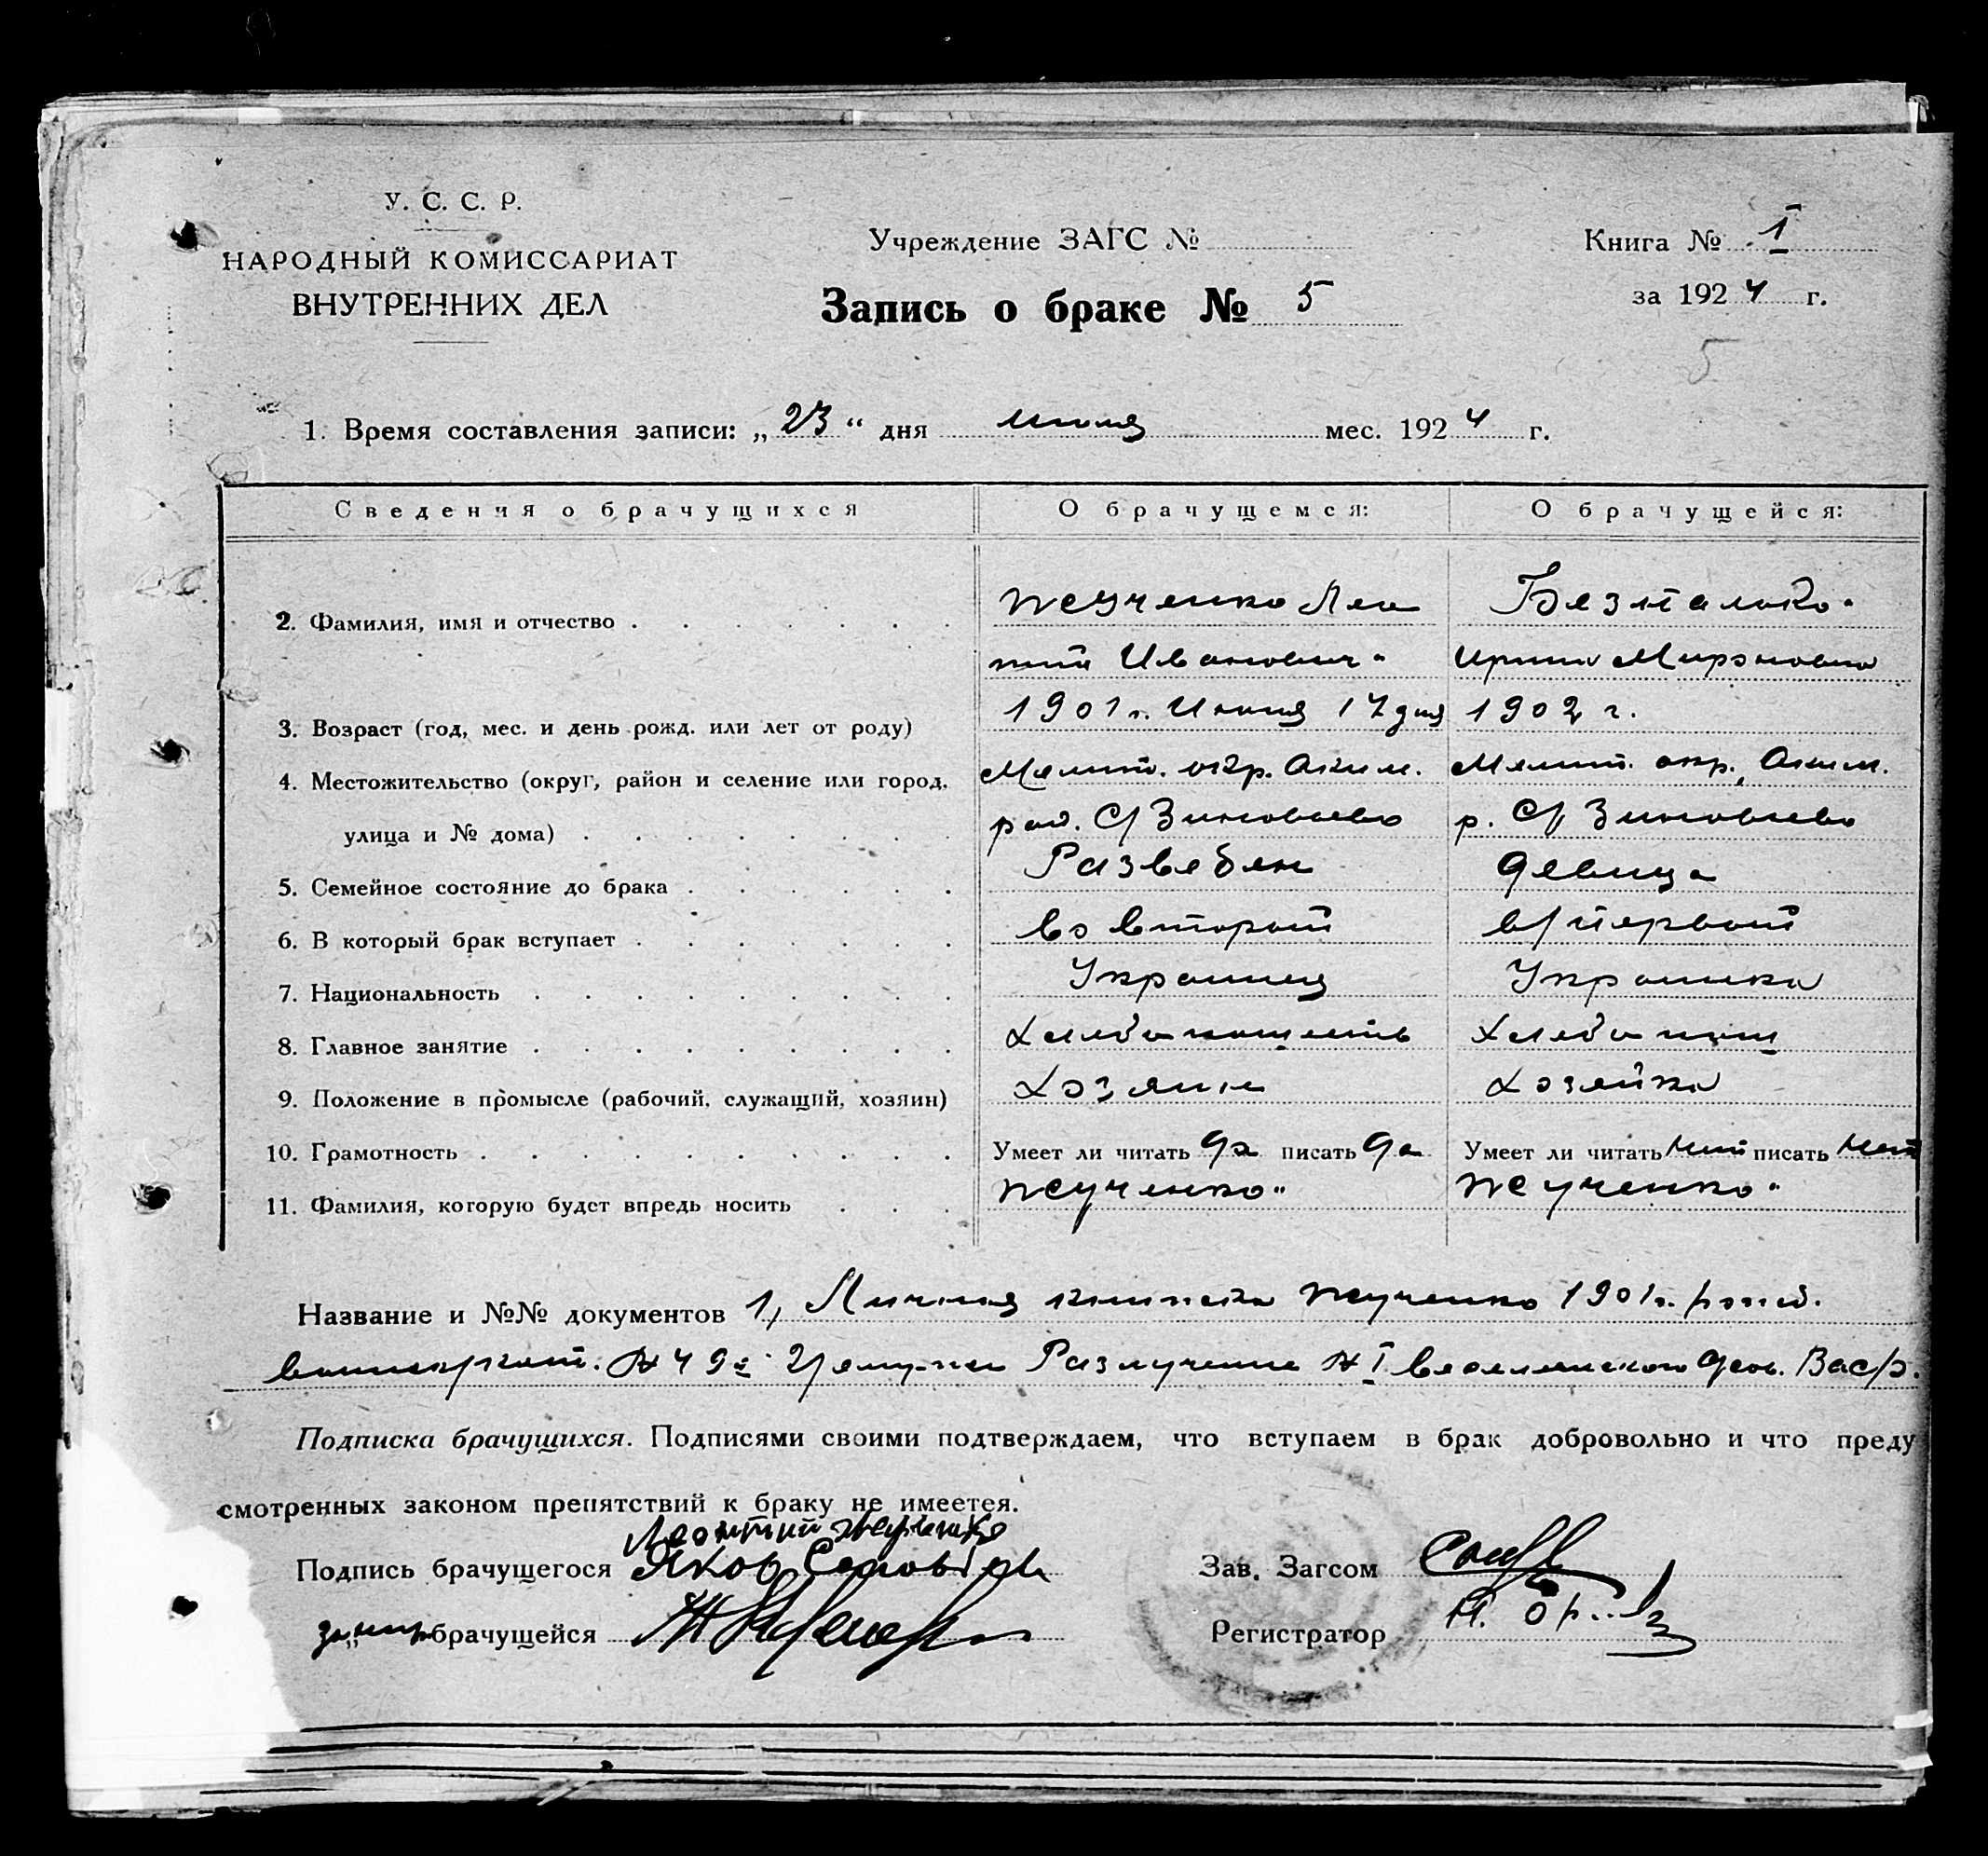 У. С. С. Р.
НАРОДНЫЙ КОМИССАРИАТ
ВНУТРЕННИХ ДЕЛ
Учреждение ЗАГС №
Запись о браке № 5
Книга № I
за 1924 г.
5
1. Время составления записи: „23“ дня июля мес. 1924 г.
Сведения о брачущихся
О брачущемся:
О брачущейся:
2. Фамилия, имя и отчество
Жученко Лео
нтий Иванович
Безталько
Ирина Мироновна
3. Возраст (год, мес. и день рожд. или лет от роду)
1901 г. Июня 17 дня
1902 г.
4. Местожительство (округ, район и селение или город,
улица и № дома)
Мелит. окр. Аким.
рай. С/Зиновьево
Мелит. окр., Аким.
р. С/ Зиновьево
5. Семейное состояние до брака
Разведен
девица
6. В который брак вступает
во второй
в/первый
7. Национальность
Украинец
Украинка
8. Главное занятие
Хлебопашець
Хлебопаш
9. Положение в промысле (рабочий, служащий, хозяин)
Хозяин
Хозяйка
10. Грамотность
Умеет ли читать да писать да
Умеет ли читать нет писать нет
11. Фамилия, которую будет впредь носить
Жученко
Жученко
Название и №№ документов 1, Личная книжка Жученко 1901 г.
Подписка брачущихся. Подписями своими подтверждаем, что вступаем в брак добровольно и что преду
смотренных законом препятствий к браку не имеется.
Подпись брачущегося
брачущейся
Зав. Загсом
Регистратор